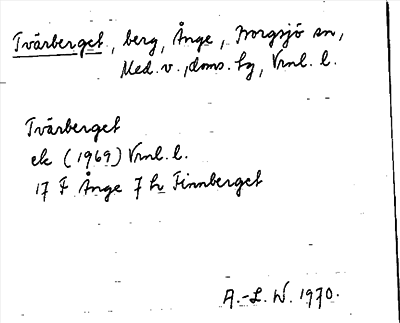 Tvärberget, berg, Ånge, Borgsjö sn,
Med. v., doms. tg, Vrnl. l.
Tvärberget
ek (1969) Vrnl. l.
17 F Ånge 7 h Finnberget
A.-L. W. 1970.